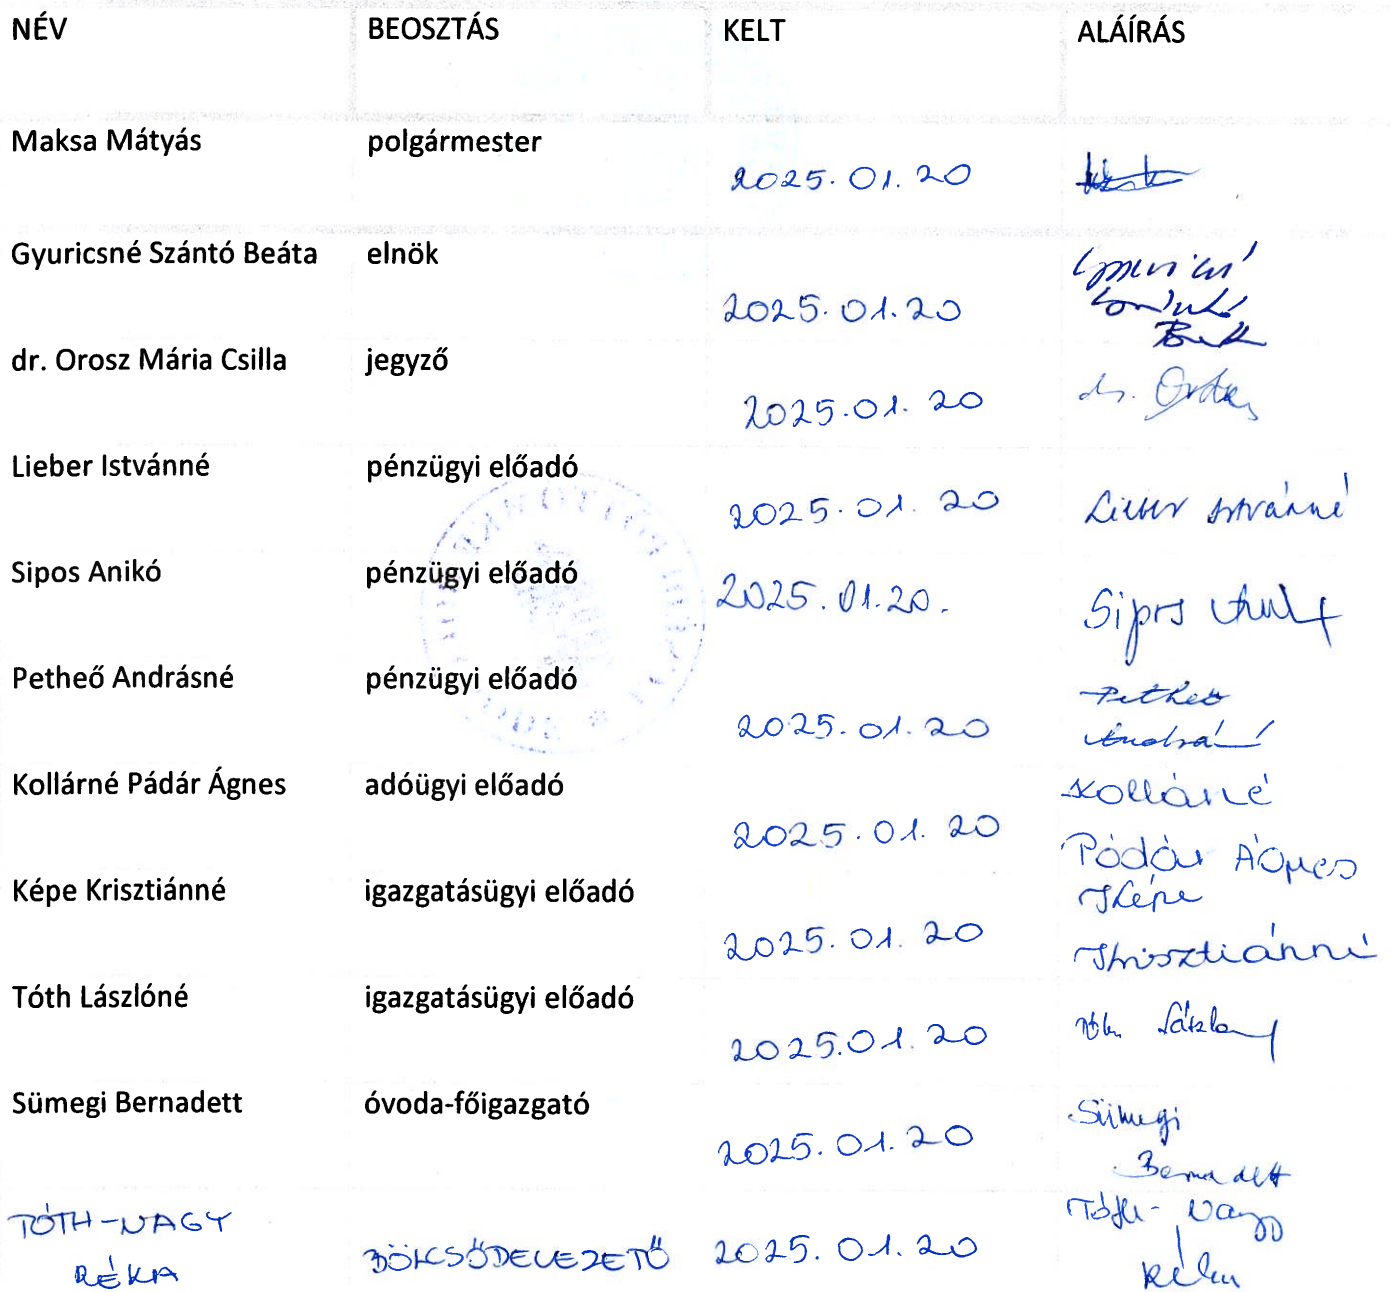 NÉV BEOSZTÁS KELT ALÁÍRÁS
Maksa Mátyás polgármester
2025.01.20
Gyuricsné Szántó Beáta elnök
2025.01.20
dr. Orosz Mária Csilla jegyző
2025.01.20 dr.
Lieber Istvánné pénzügyi előadó
2025.01.20 Lieber Istvánné
Sipos Anikó pénzügyi előadó
2025.01.20. Sipos
Petheő Andrásné pénzügyi előadó
Petheő
2025.01.20
Kollárné Pádár Ágnes adóügyi előadó
Kollárné
2025.01.20
Pádár Ágnes
Képe Krisztiánné igazgatásügyi előadó
Képe
2025.01.20
Krisztiánné
Tóth Lászlóné igazgatásügyi előadó
2025.01.20 Tóth
Sümegi Bernadett óvoda-főigazgató
Sümegi
2025.01.20
Bernadett
TÓTH-NAGY
Tóth-Nagy
RÉKA BÖLCSŐDEVEZETŐ 2025.01.20
Réka